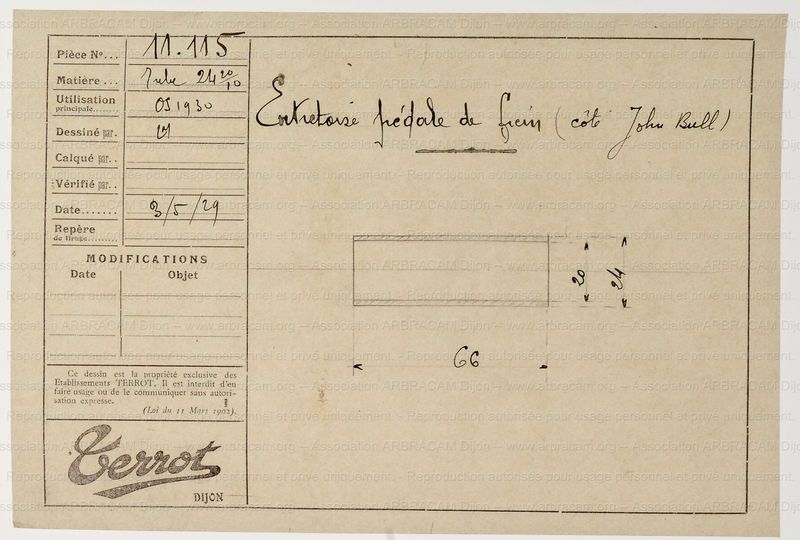 Pièce No... 11.115
Matière... Tube 24 20/10
Utilisation
principale......... OS 1930
Dessiné par.
Calqué par..
Vérifié par..
Date....... 3/5/29
Repère
de tirage.........
MODIFICATIONS
Date Objet
Ce dessin est la propriété exclusive des
Etablissements TERROT. Il est interdit d'en
faire usage ou de le communiquer sans autori-
sation expresse.
(Loi du 11 Mars 1902).
Terrot
DIJON
Entretoise pédale de frein (côté John Bull)
20
24
66
Association ARBRACAM Dijon – www.arbracam.org – Association ARBRACAM Dijon
Reproduction autorisée pour usage personnel et privé uniquement.